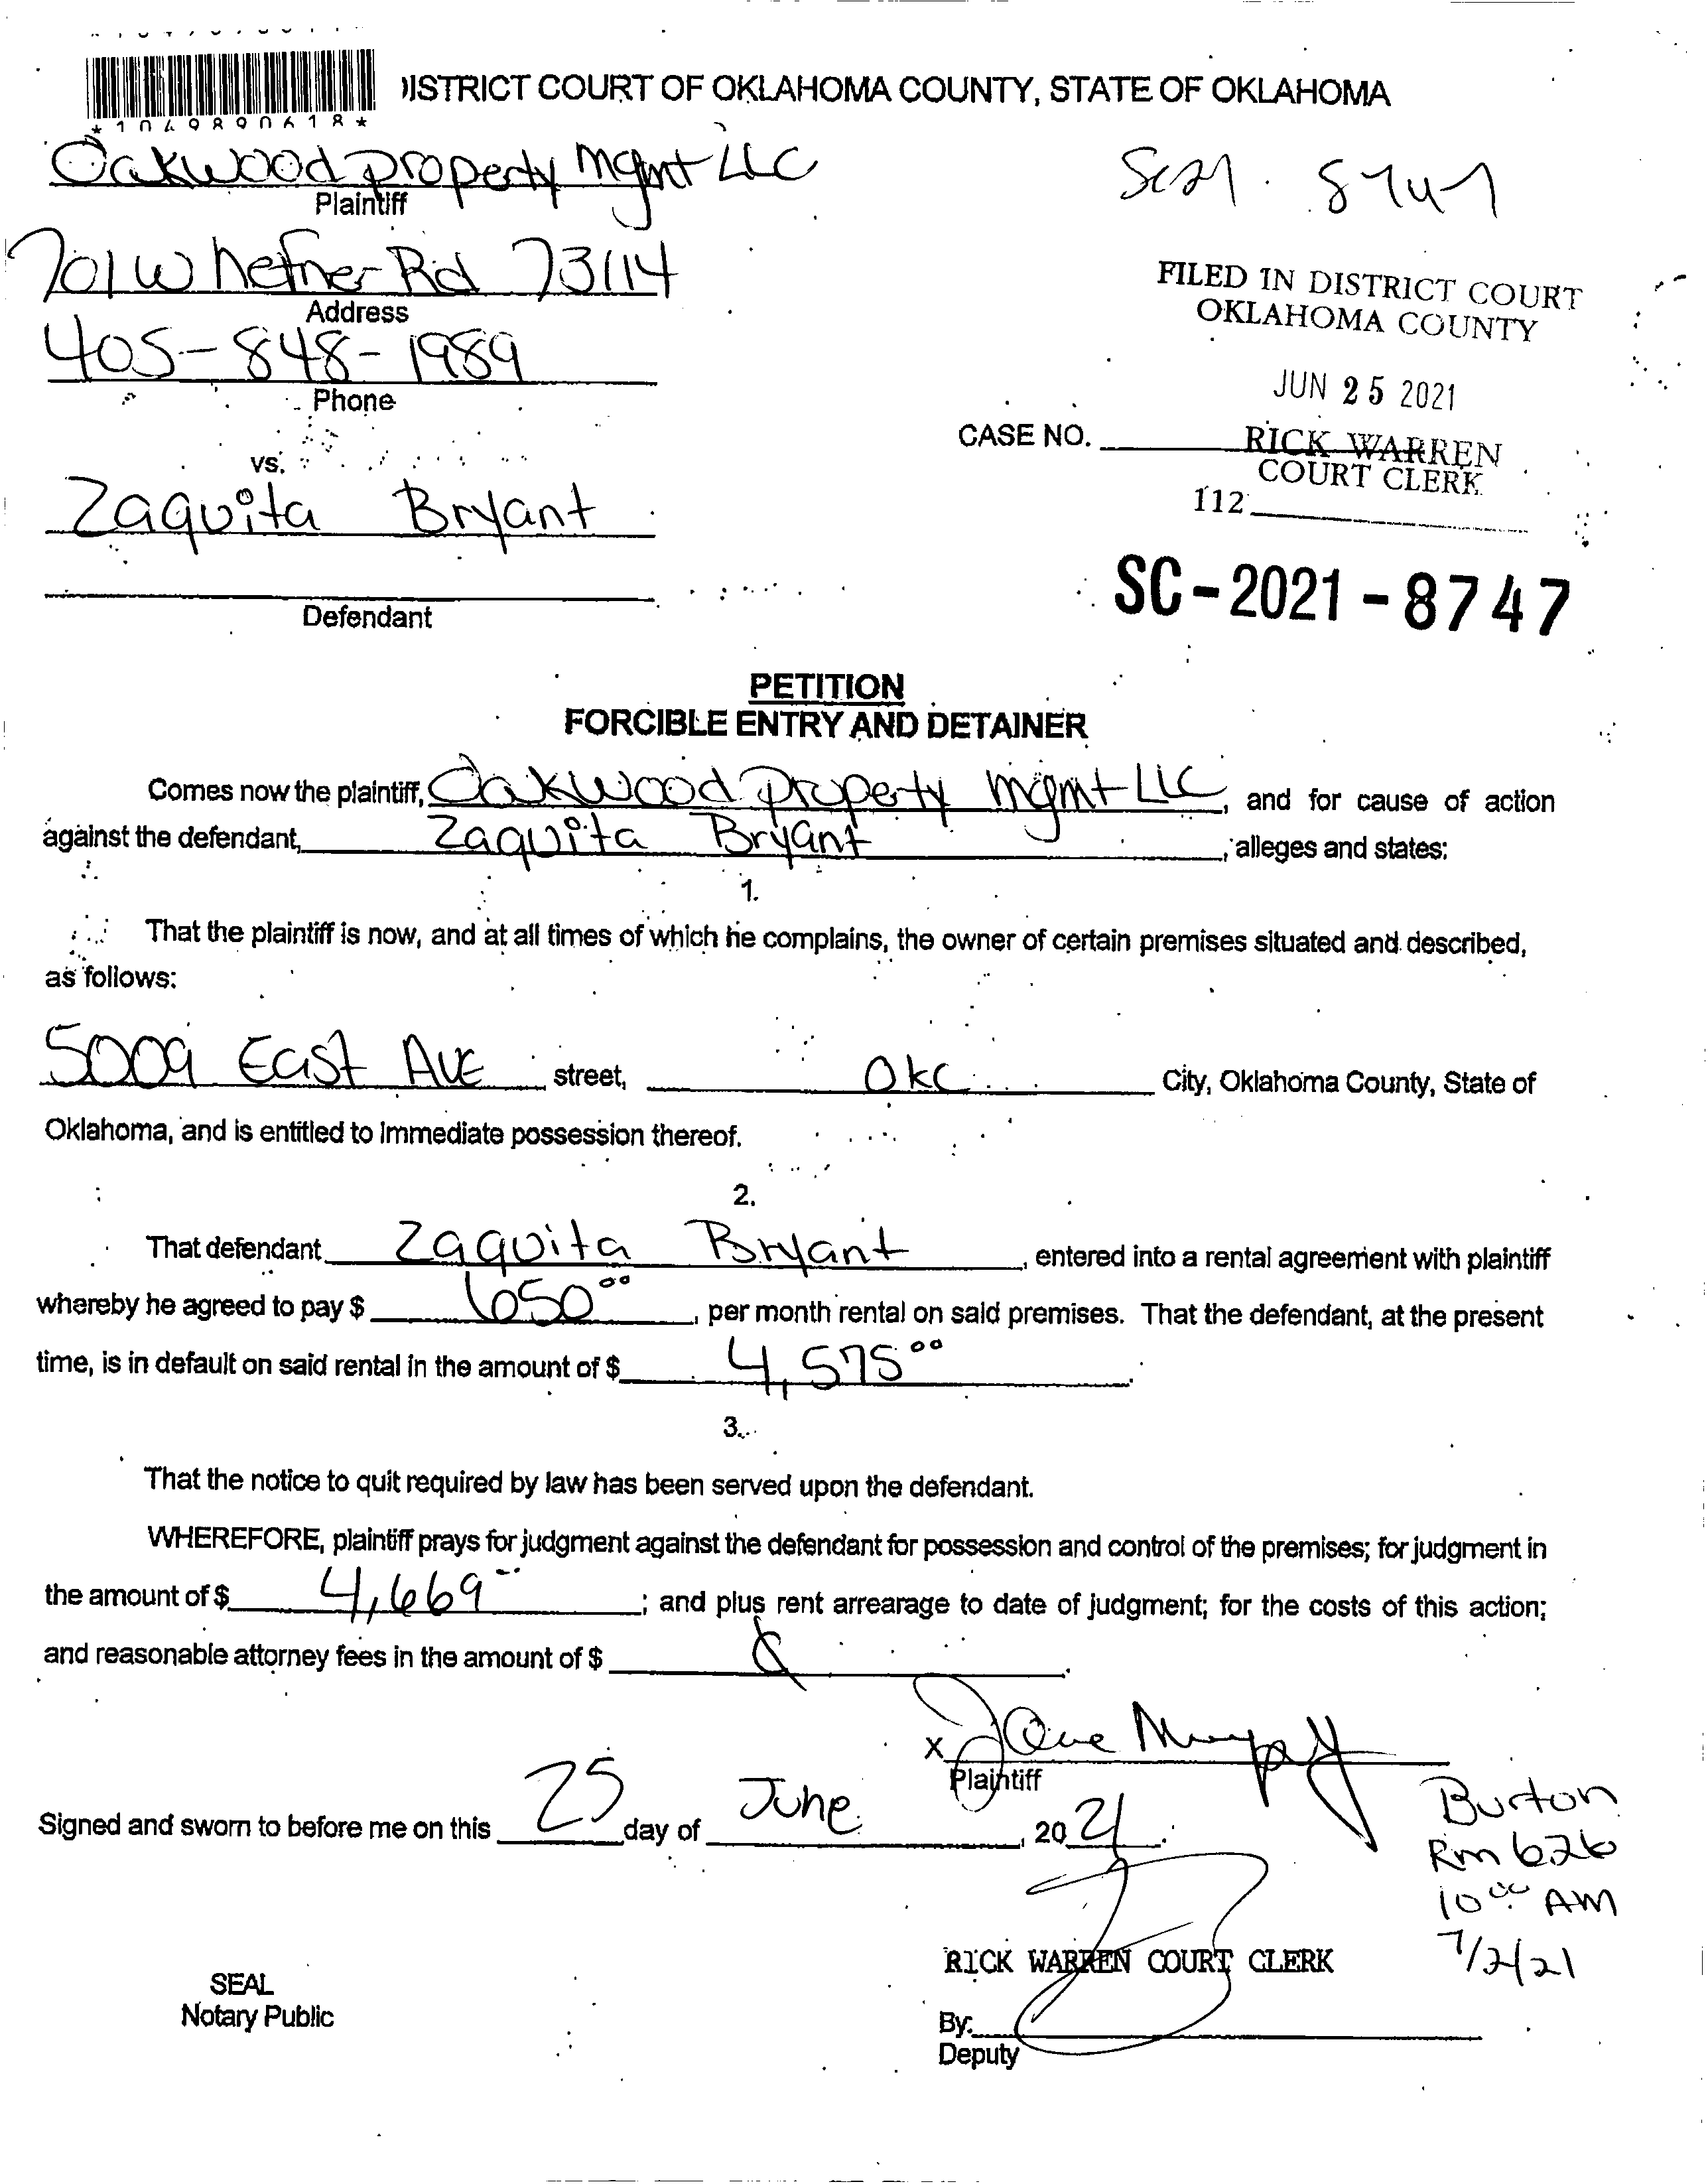 DISTRICT COURT OF OKLAHOMA COUNTY, STATE OF OKLAHOMA
*1049890618*
Oakwood property Mgmt LLC
Plaintiff
SC21 - 8747
701 W hefner Rd 73114
Address
405-848-1989
Phone
FILED IN DISTRICT COURT
OKLAHOMA COUNTY
JUN 25 2021
CASE NO.
RICK WARREN
COURT CLERK
112
vs.
Zaquita Bryant
Defendant
SC-2021-8747
PETITION
FORCIBLE ENTRY AND DETAINER
Comes now the plaintiff, Oakwood property mgmt LLC, and for cause of action
against the defendant, Zaquita Bryant, alleges and states:
1.
That the plaintiff is now, and at all times of which he complains, the owner of certain premises situated and described,
as follows:
5009 East Ave street, Okc City, Oklahoma County, State of
Oklahoma, and is entitled to immediate possession thereof.
2.
That defendant Zaquita Bryant, entered into a rental agreement with plaintiff
whereby he agreed to pay $ 650 00, per month rental on said premises. That the defendant, at the present
time, is in default on said rental in the amount of $ 4,575 00.
3.
That the notice to quit required by law has been served upon the defendant.
WHEREFORE, plaintiff prays for judgment against the defendant for possession and control of the premises; for judgment in
the amount of $ 4,669; and plus rent arrearage to date of judgment; for the costs of this action;
and reasonable attorney fees in the amount of $
x
Plaintiff
Signed and sworn to before me on this 25 day of June, 2021.
Burton
Rm 626
10:00 AM
7/2/21
RICK WARREN COURT CLERK
SEAL
Notary Public
By:
Deputy